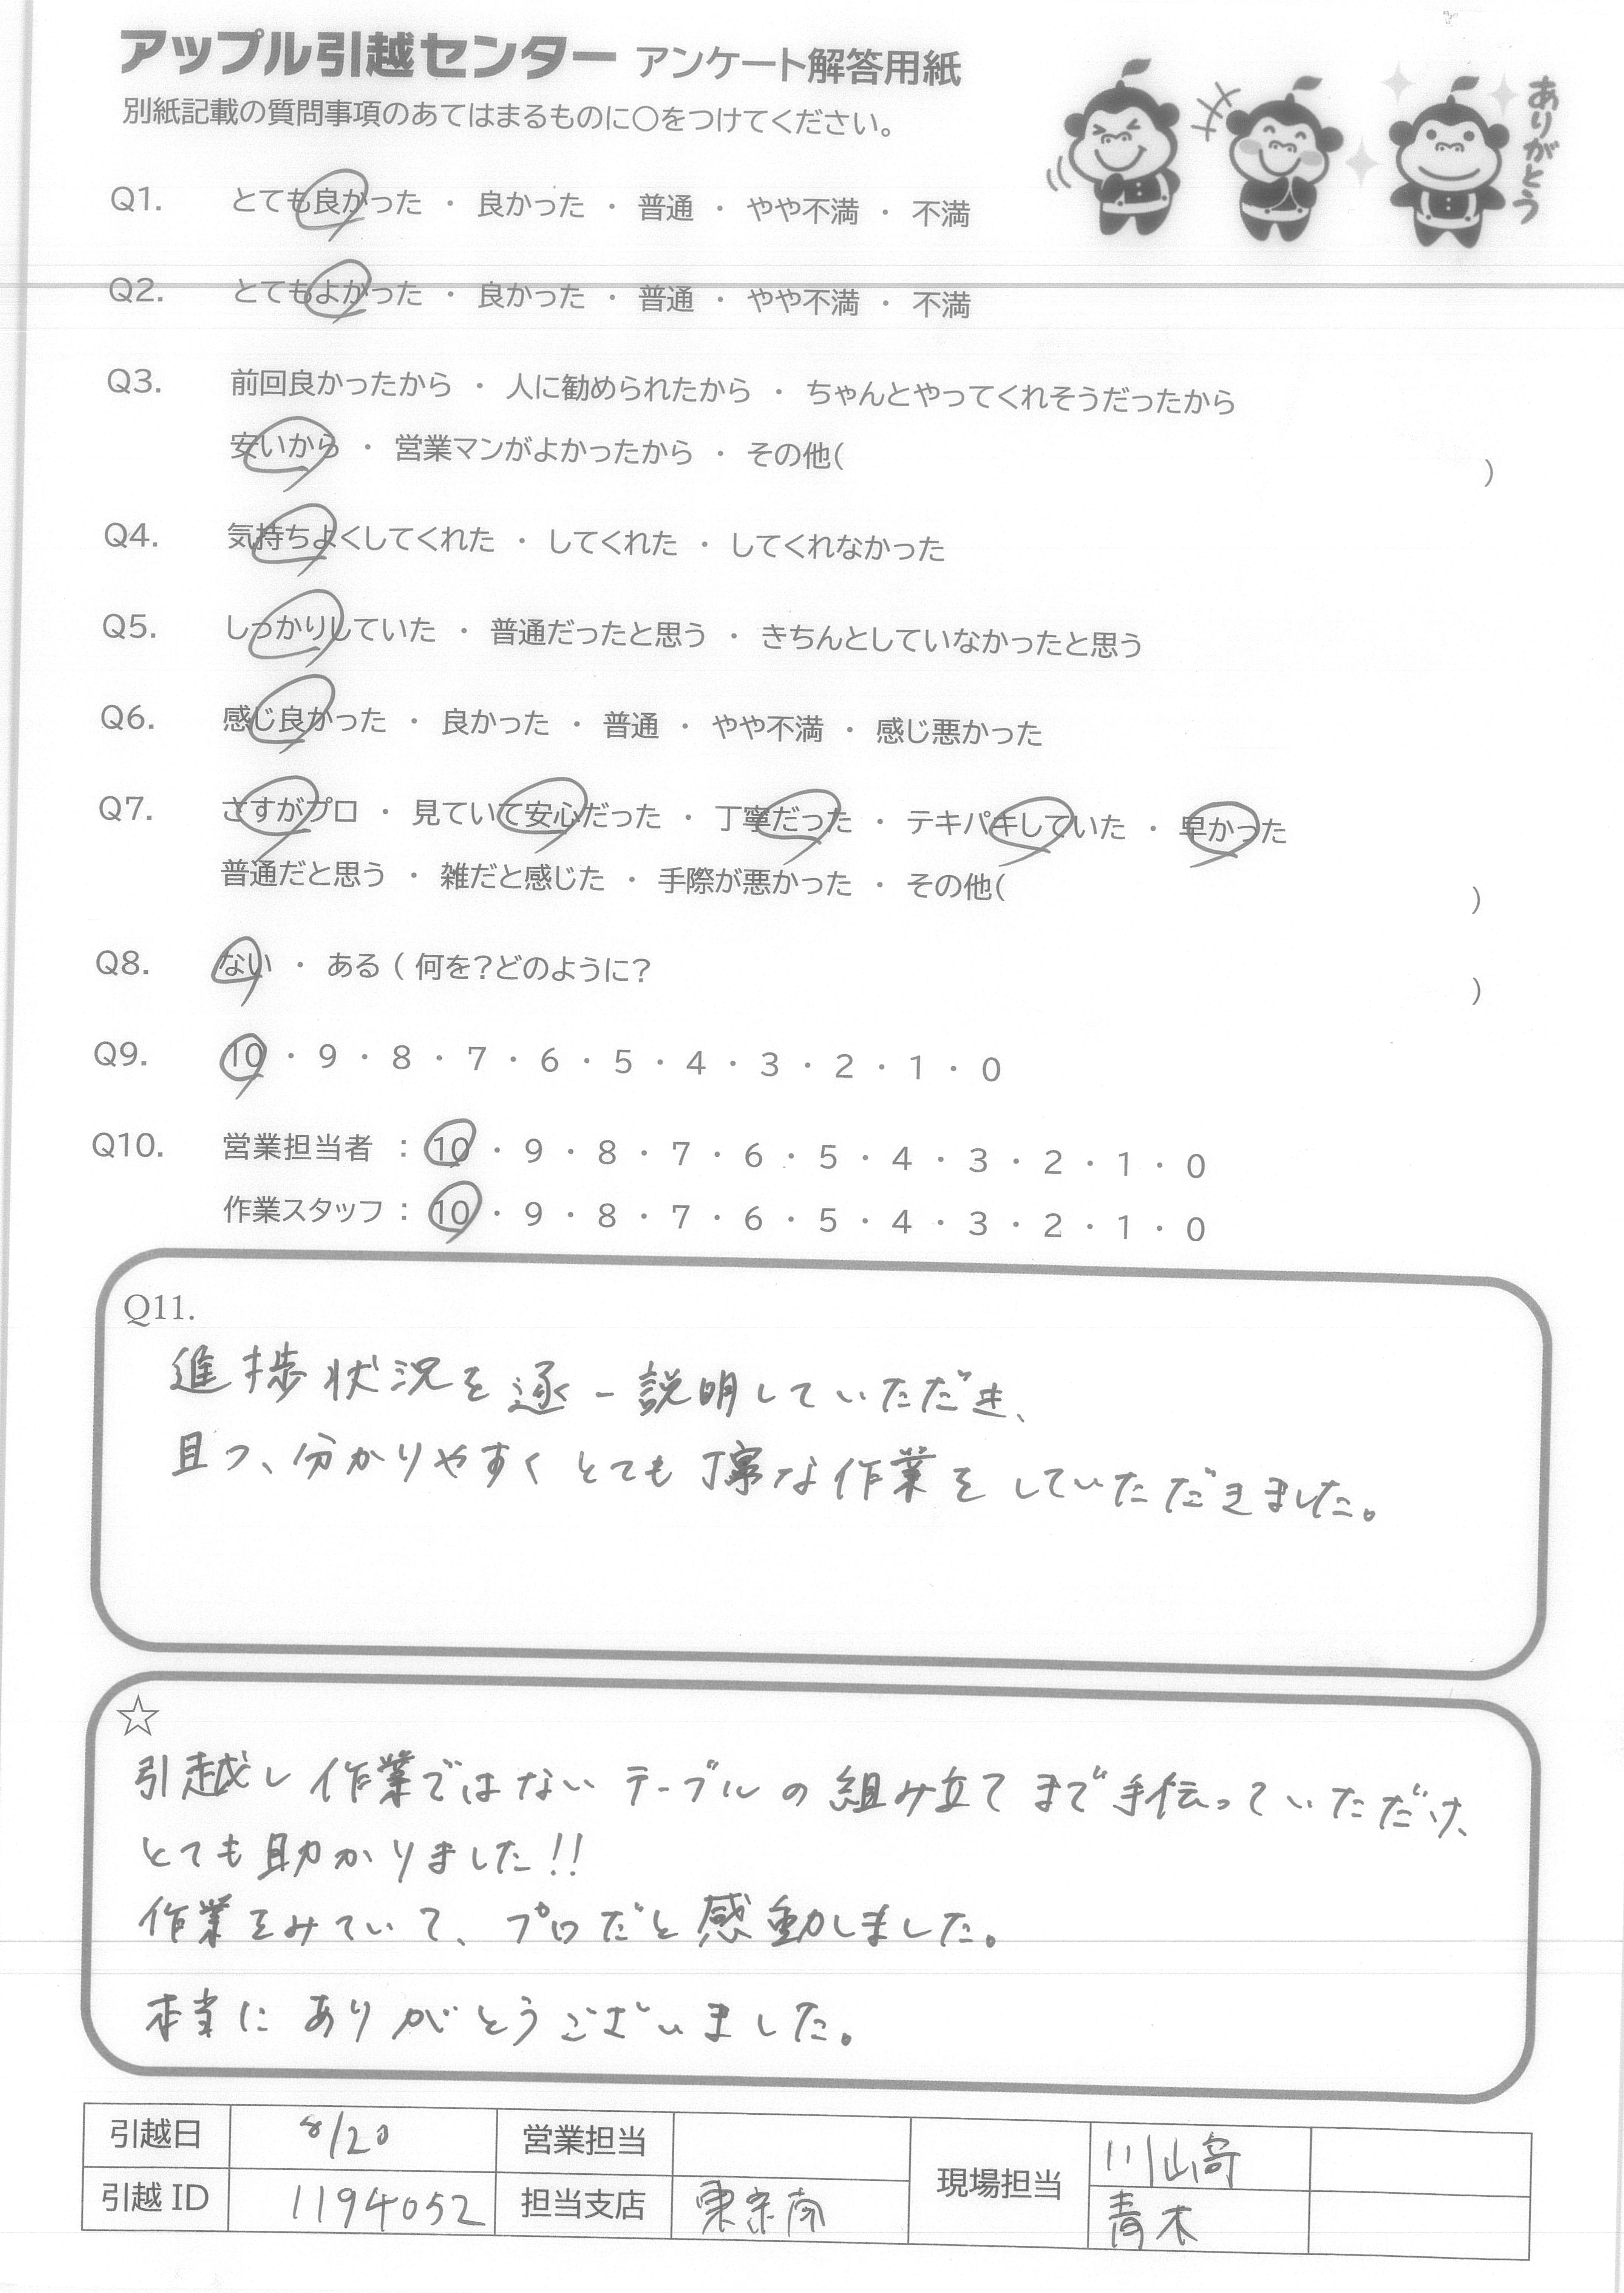 アップル引越センター アンケート解答用紙
別紙記載の質問事項のあてはまるものに〇をつけてください。
ありがとう
Q1. とても良かった ・ 良かった ・ 普通 ・ やや不満 ・ 不満
Q2. とてもよかった ・ 良かった ・ 普通 ・ やや不満 ・ 不満
Q3. 前回良かったから ・ 人に勧められたから ・ ちゃんとやってくれそうだったから
安いから ・ 営業マンがよかったから ・ その他( )
Q4. 気持ちよくしてくれた ・ してくれた ・ してくれなかった
Q5. しっかりしていた ・ 普通だったと思う ・ きちんとしていなかったと思う
Q6. 感じ良かった ・ 良かった ・ 普通 ・ やや不満 ・ 感じ悪かった
Q7. さすがプロ ・ 見ていて安心だった ・ 丁寧だった ・ テキパキしていた ・ 早かった
普通だと思う ・ 雑だと感じた ・ 手際が悪かった ・ その他( )
Q8. ない ・ ある ( 何を?どのように? )
Q9. 10 ・ 9 ・ 8 ・ 7 ・ 6 ・ 5 ・ 4 ・ 3 ・ 2 ・ 1 ・ 0
Q10. 営業担当者 : 10 ・ 9 ・ 8 ・ 7 ・ 6 ・ 5 ・ 4 ・ 3 ・ 2 ・ 1 ・ 0
作業スタッフ : 10 ・ 9 ・ 8 ・ 7 ・ 6 ・ 5 ・ 4 ・ 3 ・ 2 ・ 1 ・ 0
Q11.
進捗状況を逐一説明していただき、
且つ、分かりやすくとても丁寧な作業をしていただきました。
☆
引越し作業ではないテーブルの組み立てまで手伝っていただけ、
とても助かりました!!
作業をみていて、プロだと感動しました。
本当にありがとうございました。
引越日 8/20 営業担当 現場担当 川崎
引越ID 1194052 担当支店 東京南 青木